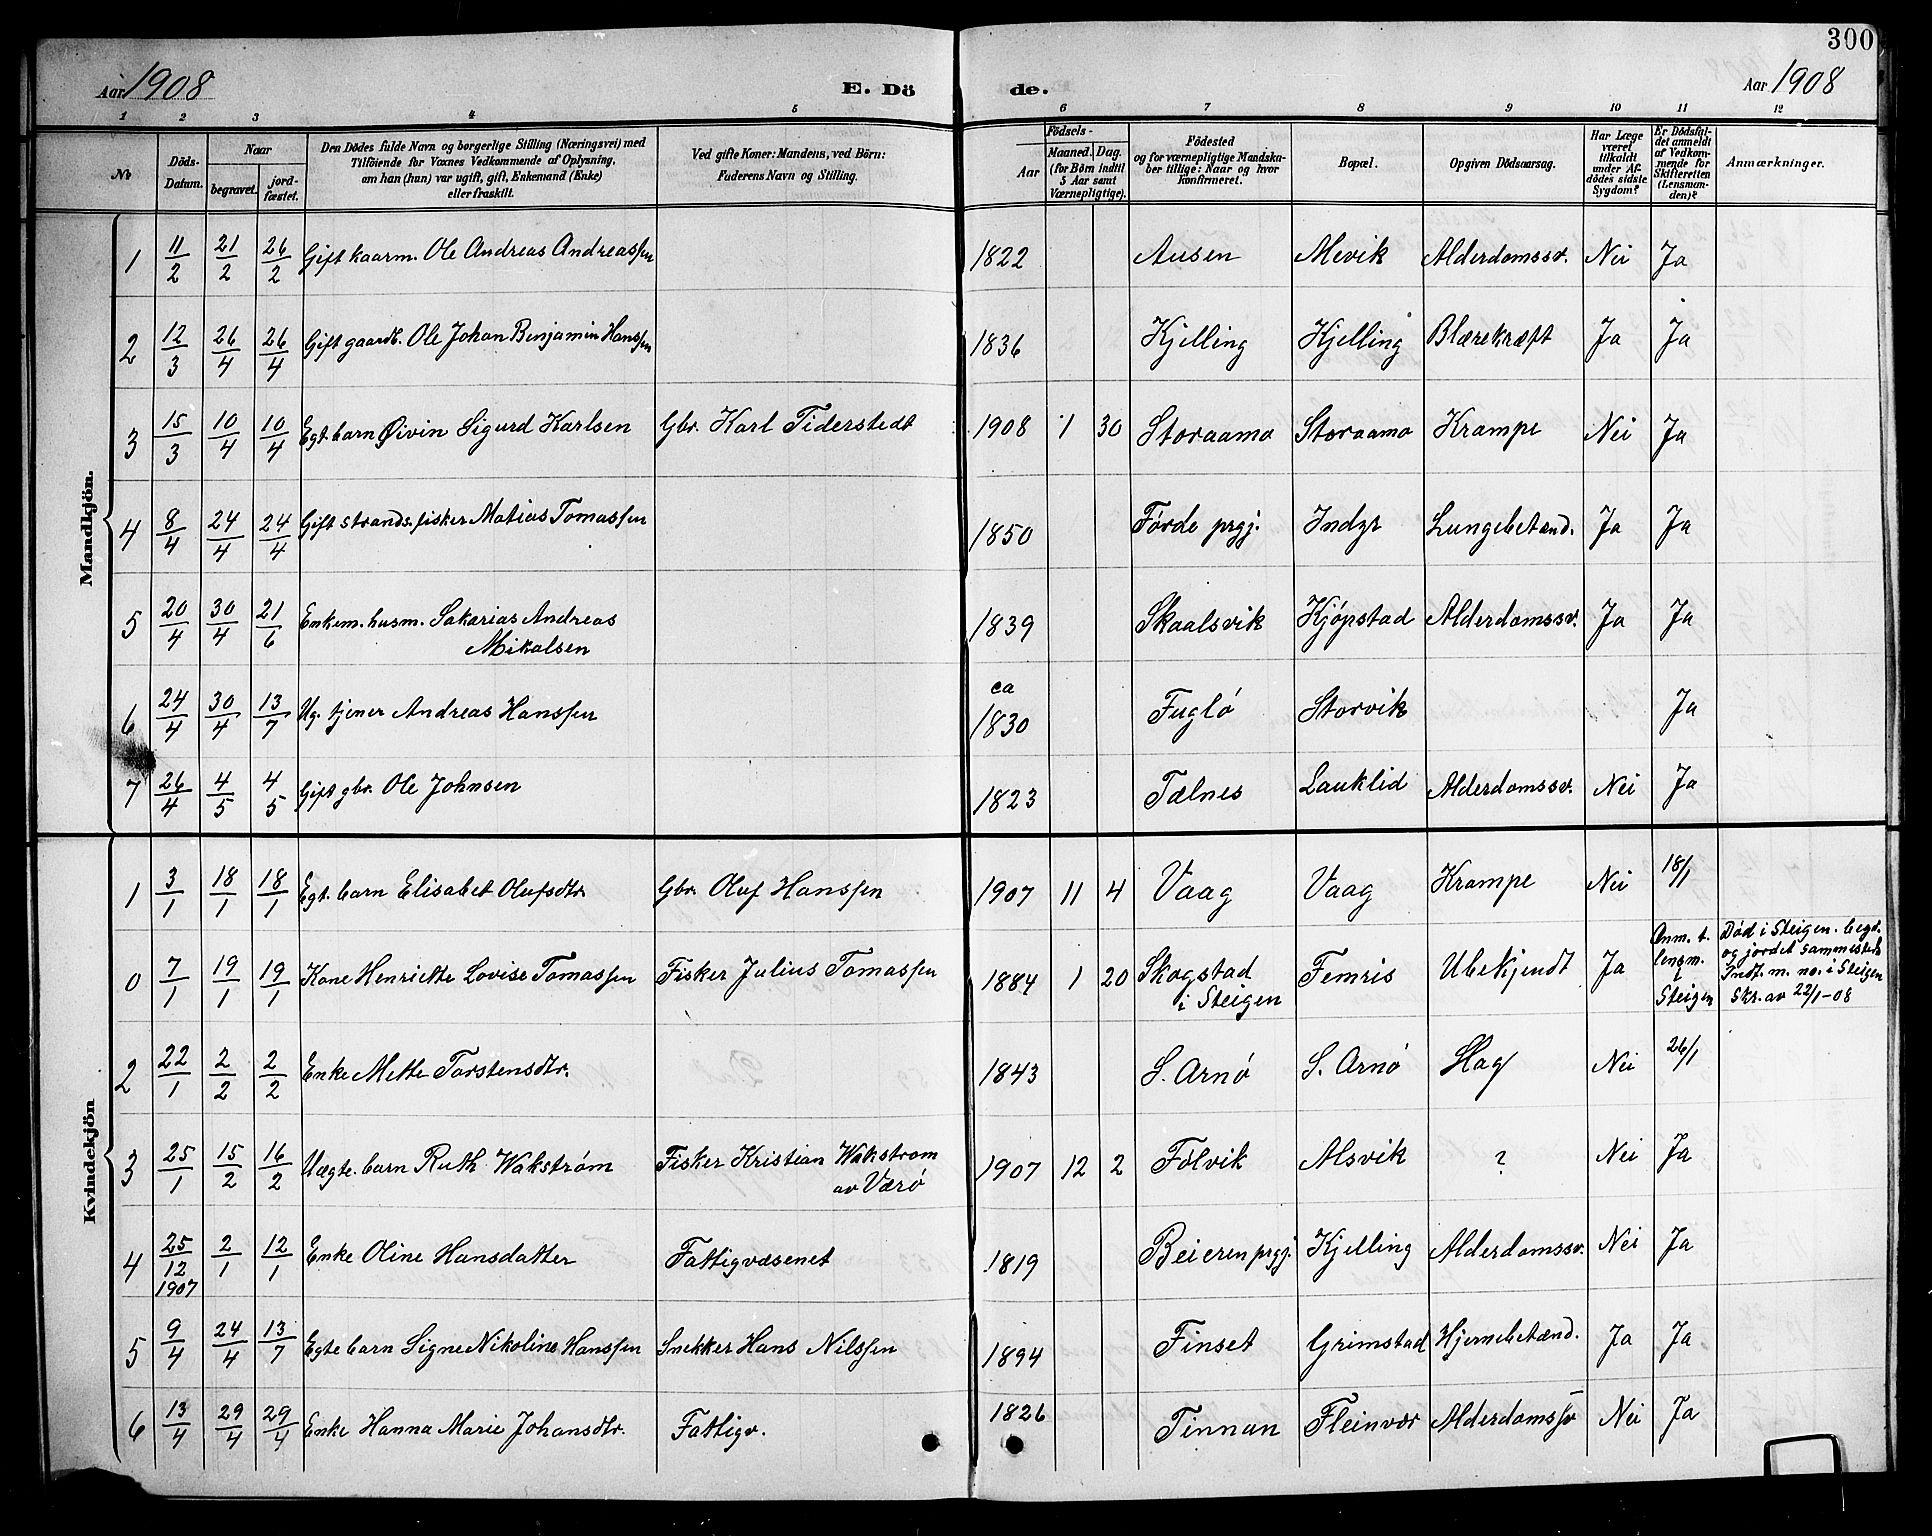 300
Aar 1908 E. Dö de. Aar 1908
1 2 3 4 5 6 7 8 9 10 11 12
No
Döds-Datum.
Naar
begravet. jordfæstet.
Den Dödes fulde Navn og borgerlige Stilling (Næringsvei) med
Tilföiende for Voxnes Vedkommende af Oplysning,
om han (hun) var ugift, gift, Enkemand (Enke)
eller fraskilt.
Ved gifte Koner: Mandens, ved Börn:
Faderens Navn og Stilling.
Födsels-
Aar Maaned. Dag.
(for Börn indtil
5 Aar samt
Værnepligtige).
Födested
og for værnepligtige Mandska-
ber tillige: Naar og hvor
konfirmeret.
Bopæl.
Opgiven Dödsaarsag.
Har Læge
været
tilkaldt
under Af-
dödes sidste
Sygdom?
Er Dödsfal-
det anmeldt
af Vedkom-
mende for
Skifteretten
(Lensman-
den)?
Anmærkninger.
Mandkjön.
1 11/2 21/2 26/2 Gift kaarm. Ole Andreas Andreassen 1822 Ausen Mevik Alderdomssv. Nei Ja
2 12/3 26/4 26/4 Gift gaardb. Ole Johan Benjamin Hanssen 1836 Kjelling Kjelling Blærekræft Ja Ja
3 15/3 10/4 10/4 Egt. barn Øivin Sigurd Karlsen Gbr. Karl Tiderstedt 1908 1 30 Storaamo Storaamo Krampe Nei Ja
4 8/4 24/4 24/4 Gift strands. fisker Matias Tomassen 1850 Førde prgj. Indyr Lungebetænd. Ja Ja
5 20/4 30/4 21/6 Enkem. husm. Sakarias Andreas 1839 Skaalsvik Kjøpstad Alderdomssv. Ja Ja
Mikalsen
6 24/4 30/4 13/7 Ug. tjener Andreas Hanssen ca 1830 Fuglø Storvik Ja
7 26/4 4/5 4/5 Gift gbr. Ole Johnsen 1823 Tælnes Lauklid Alderdomssv. Nei Ja
Kvindekjön
1 3/1 18/1 18/1 Egt. barn Elisabet Olufsdtr. Gbr. Oluf Hanssen 1907 11 4 Vaag Vaag Krampe Nei 18/1
0 7/1 19/1 19/1 Kone Henriette Lovise Tomassen Fisker Julius Tomassen 1884 1 20 Skogstad i Steigen Femris Ubekjendt Ja Anm. t. lensm. i Steigen
Død i Steigen. begr.
og jordet sammesteds
Indf. m. no. i Steigen
Skr. av 22/1-08
2 22/1 2/2 2/2 Enke Mette Torstensdtr. 1843 S. Arnø S. Arnø Slag Nei 26/1
3 25/1 15/2 16/2 Uægte. barn Ruth Wakstrøm Fisker Kristian Wakstrom 1907 12 2 Følvik Alsvik ? Nei Ja
av Værø
4 25/12 1907 2/1 12/1 Enke Oline Hansdatter Fattigvæsenet 1819 Beieren prgj. Kjelling Alderdomssv. Nei Ja
5 9/4 24/4 13/7 Egte barn Signe Nikoline Hanssen Snekker Hans Nilssen 1894 Finset Grimstad Hjernebetænd. Ja Ja
6 13/4 29/4 29/4 Enke Hanna Marie Johansdtr. Fattigv. 1826 Tinnan Fleinvær Alderdomssv Nei Ja